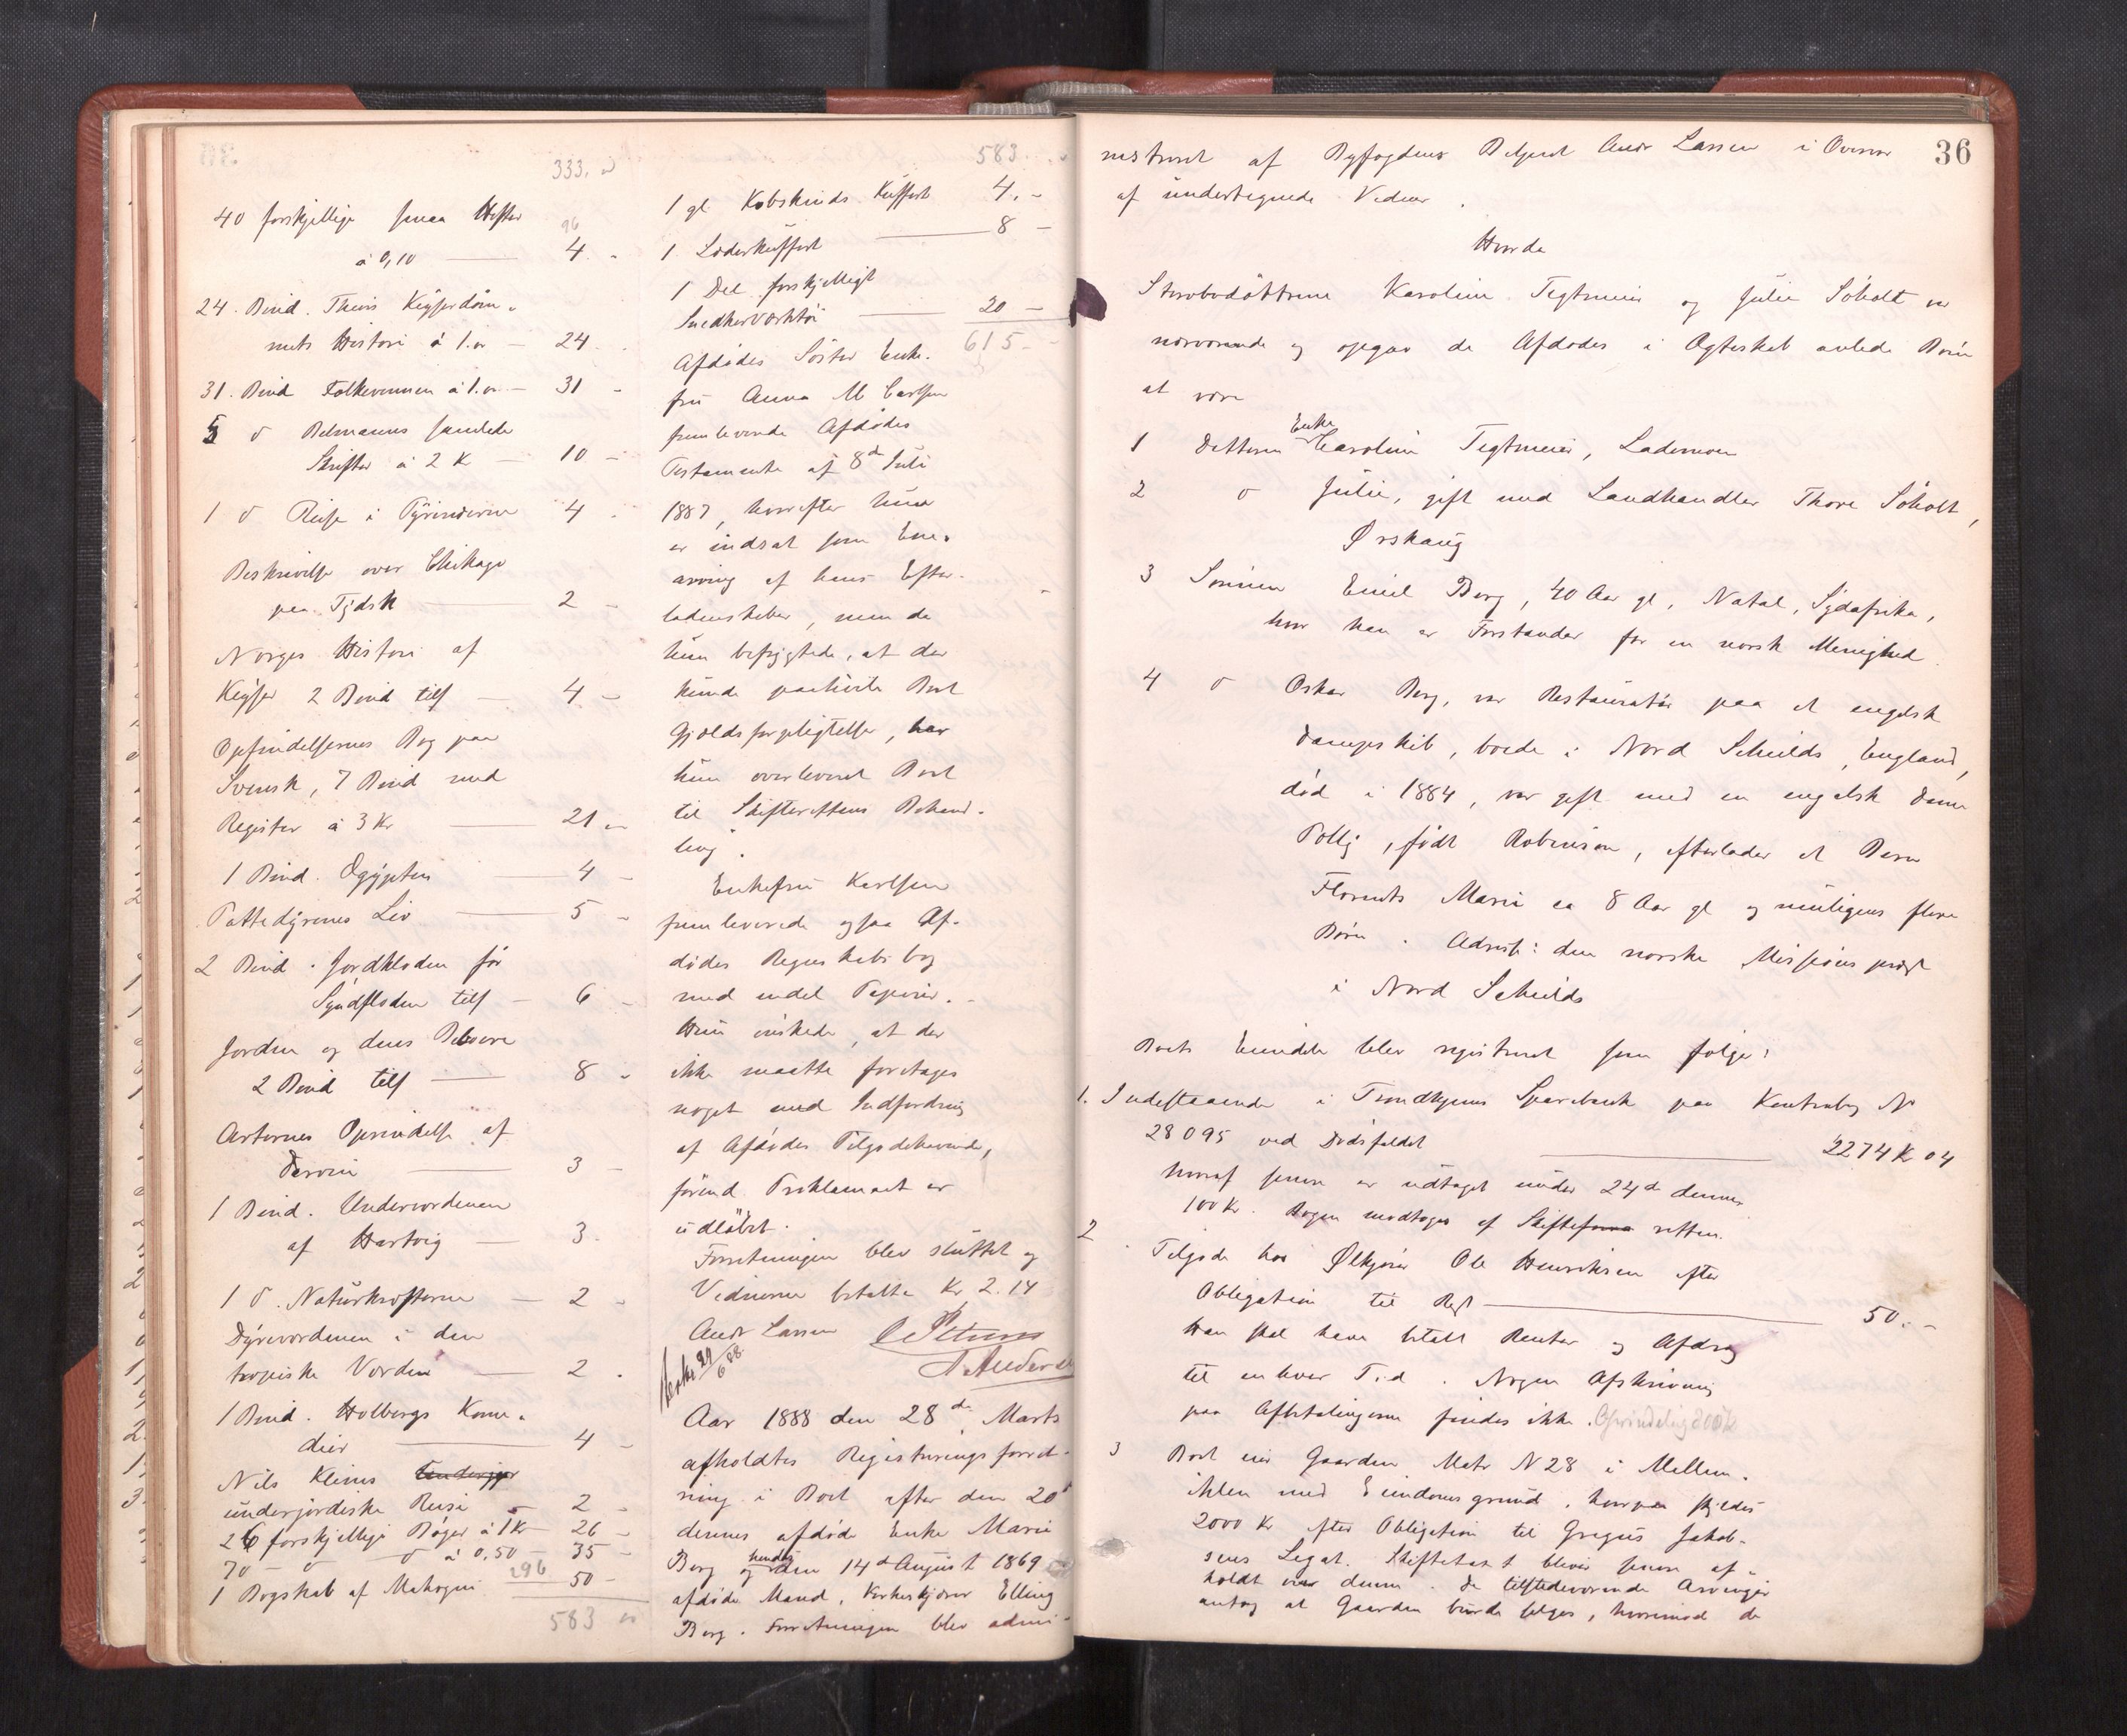 333.
40 forskjellige smaa Hefter
96
à 0,10 4. -
24. Bind. Thiers Keyserdøm-
mets Histori à 1.- 24.
31. Bind Folkevennen à 1.- 31 -
5 d Belmanns samlede
Skrifter à 2 K 10 -
1 d Reise i Pyrinderne 4
Beskrivelse over Chikago
paa Tydsk 2 -
Norges Histori af
Keyser 2 Bind tils 4 -
Opfindelsernes Bog paa
Svensk, 7 Bind med
Register à 3 Kr 21 -
1 Bind. Ægypten 4 -
Pattedyrenes Liv 5 -
2 Bind. Jordkloden før
Syndfloden tils 6 -
Jorden og dens Beboere
2 Bind tils 8 -
Arternes Oprindelse af
Darvin 3 -
1 Bind. Underverdenen
af Hartvig 3.
1 d. Naturkræfterne 2 -
Dyreverdenen i den
tropiske Verden 2 .
1 Bind. Holbergs Kome-
dier 4 -
Nils Klims
underjordiske Reise 2 -
26 forskjellige Bøger à 1 Kr 26 -
70 - d d à 0,50 - 35 -
296
1 Bogskab af Mahogni 50 -
583
583.
1 gl Kobskinds Kuffert 4. -
1 Læderkuffert 8 -
1 Del forskjelligt
Snedkerværktøi 20 -
615 -
Afdødes Søster Enke-
fru Anna M Carlsen
fremleverede Afdødes
Testamente af 8d Juli
1887, hvorefter hun
er indsat som Ene-
arving af hans Efter-
ladenskaber, men da
hun befrygtede, at der
kunde paahvile Boet
Gjældsforpligtelser, har
hun overleveret Boet
til Skifterettens Behand-
ling.
Enkefru Karlsen
fremleverede ogsaa Af-
dødes Regnskabsbog
med endel Papirer. -
Hun ønskede, at der
ikke maatte foretages
noget med Indfordring
af Afdødes Tilgodehavende,
førend Proklamaet er
udløbet.
Forretningen blev sluttet og
Vidnerne betalte Kr 2.14
Andr Lassen
29/6 88.
Aar 1888 den 28de Marts
afholdtes Registreringsforret-
ning i Boet efter den 20d
dennes afdøde Enke Marie
Berg og hendes den 14d August 1869
afdøde Mand, Kirkeskjærer Elling
Berg. Forretningen blev admi-
36
nistreret af Byfogdens Betjent Andr Lassen i Overvær
af undertegnede Vidner.
Hvorda
Stervbodøttrene Karoline Tegtmeier og Julie Søholt var
nærværende og opgav de Afdødes i Ægteskab avlede Børn
at være
1 Datteren Enke Caroline Tegtmeier, Lademoen
2 d Julie, gift med Landhandler Thore Søholt,
Ørskaug
3 Sønnen Emil Berg, 40 Aar gl, Natal, Sydafrika,
hvor han er Forstander for en norsk Menighed.
4 d Oskar Berg, var Restauratør paa et engelsk
Dampskib, boede i Nord Schields, England,
død i 1884, var gift med en engelsk Dame
Polly, født Robinson, efterlader et Barn
Florents Marie ca 8 Aar gl og muligens flere
Børn. Adresse: den norske Missions præst
i Nord Schields
Boets Eiendele blev registreret som følger:
1. Indestaaende i Trondhjems Sparebank paa Kontrabog No
28095 ved Dødsfaldet 2274 Kr 04
hvoraf senere er udtaget under 24d dennes
100 Kr. Bogen modtages af Skifteretten.
2 Tilgode hos Ølkjører Ole Henriksen efter
Obligation til Rest 50. -
Han skal have betalt Renter og Afdrag
til enhver Tid. Nogen Afskrivning
paa Afbetalingerne findes ikke. Oprindelig 200 K
3 Boet eier Gaarden Matr N 28 i Mellem-
ihlen med Eiendomsgrund, hvorpaa skyldes
2000 Kr efter Obligation til Gregus Jakob-
sens Legat. Skiftetaxt bliver senere af-
holdt over denne. De tilstedeværende Arvinger
antog at Gaarden burde sælges, hvorimod de